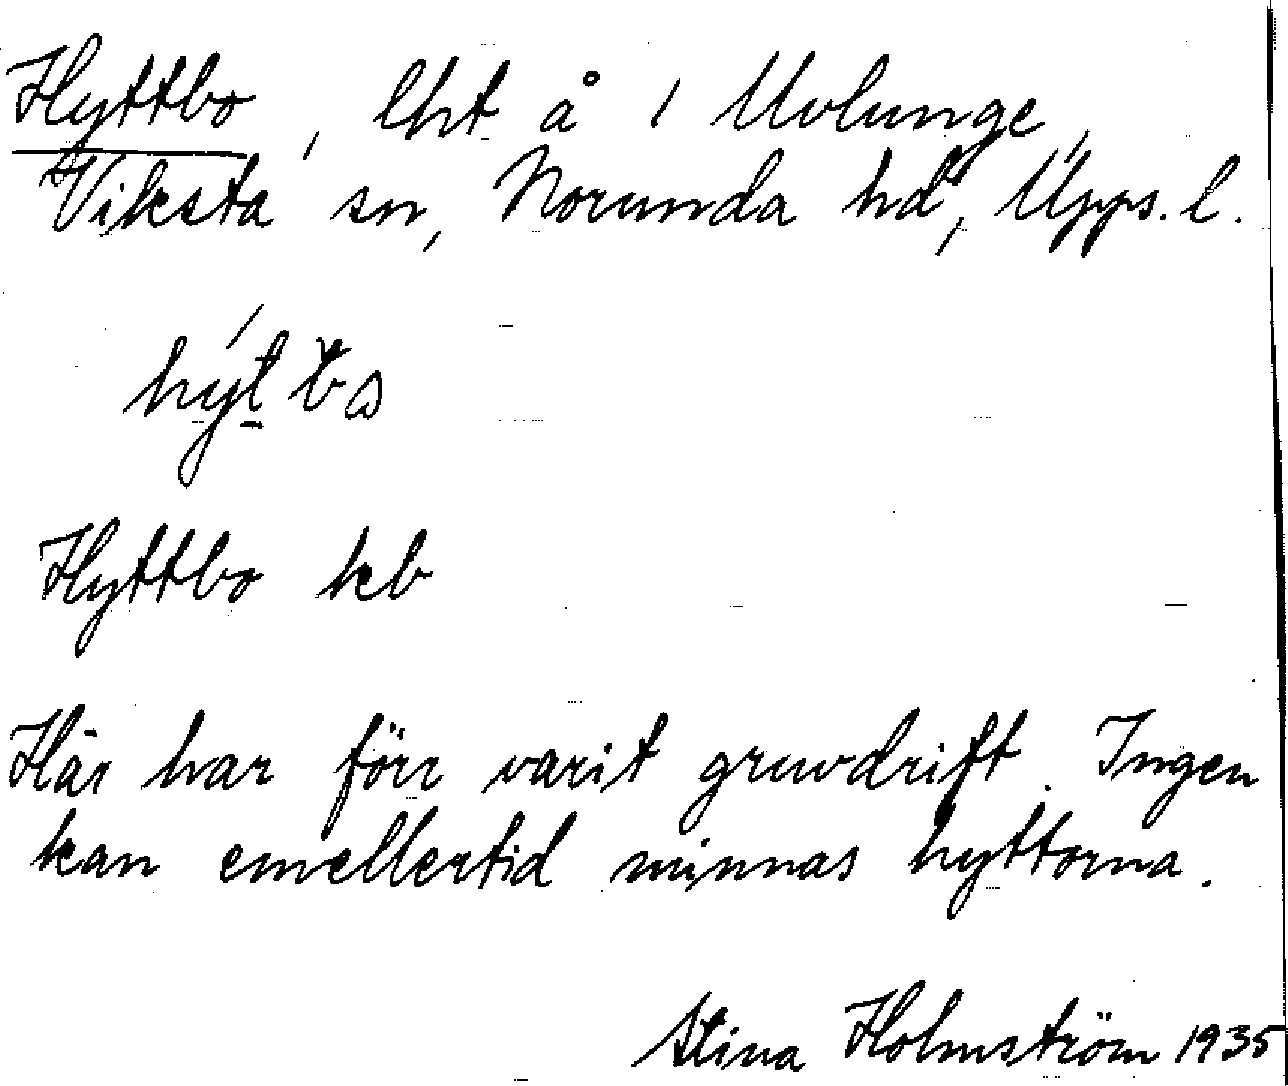 Hyttbo, lht å 1 Uvlunge,
Viksta sn, Norunda hd, Upps. l.
Hyttbo kb
Här har förr varit gruvdrift. Ingen
kan emellertid minnas hyttorna.
Stina Holmström 1935